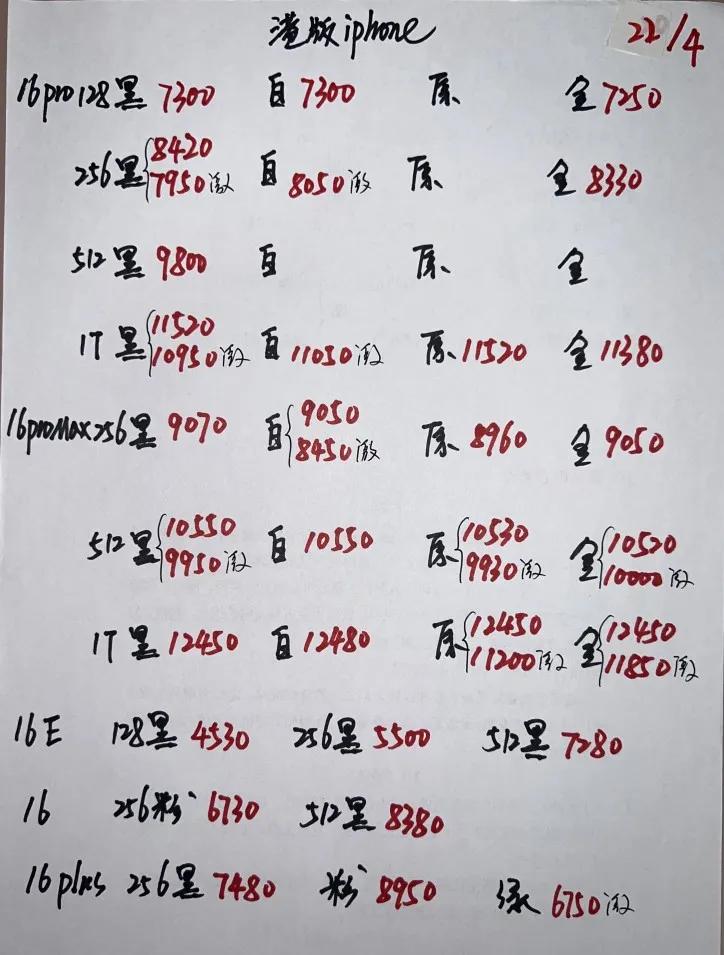 港版iphone 22/4
16pro128黑 7300 白 7300 原 金 7250
256黑 8420 7950激 白 8050激 原 金 8330
512黑 9800 白 原 金
1T 黑 11520 10950激 白 11050激 原 11520 金 11380
16proMax256黑 9070 白 9050 8450激 原 8960 金 9050
512黑 10550 9950激 白 10550 原 10530 9930激 金 10520 10000激
1T 黑 12450 白 12480 原 12450 11200激 金 12450 11850激
16E 128黑 4530 256黑 5500 512黑 7280
16 256粉 6730 512黑 8380
16plus 256黑 7480 粉 8950 绿 6750激